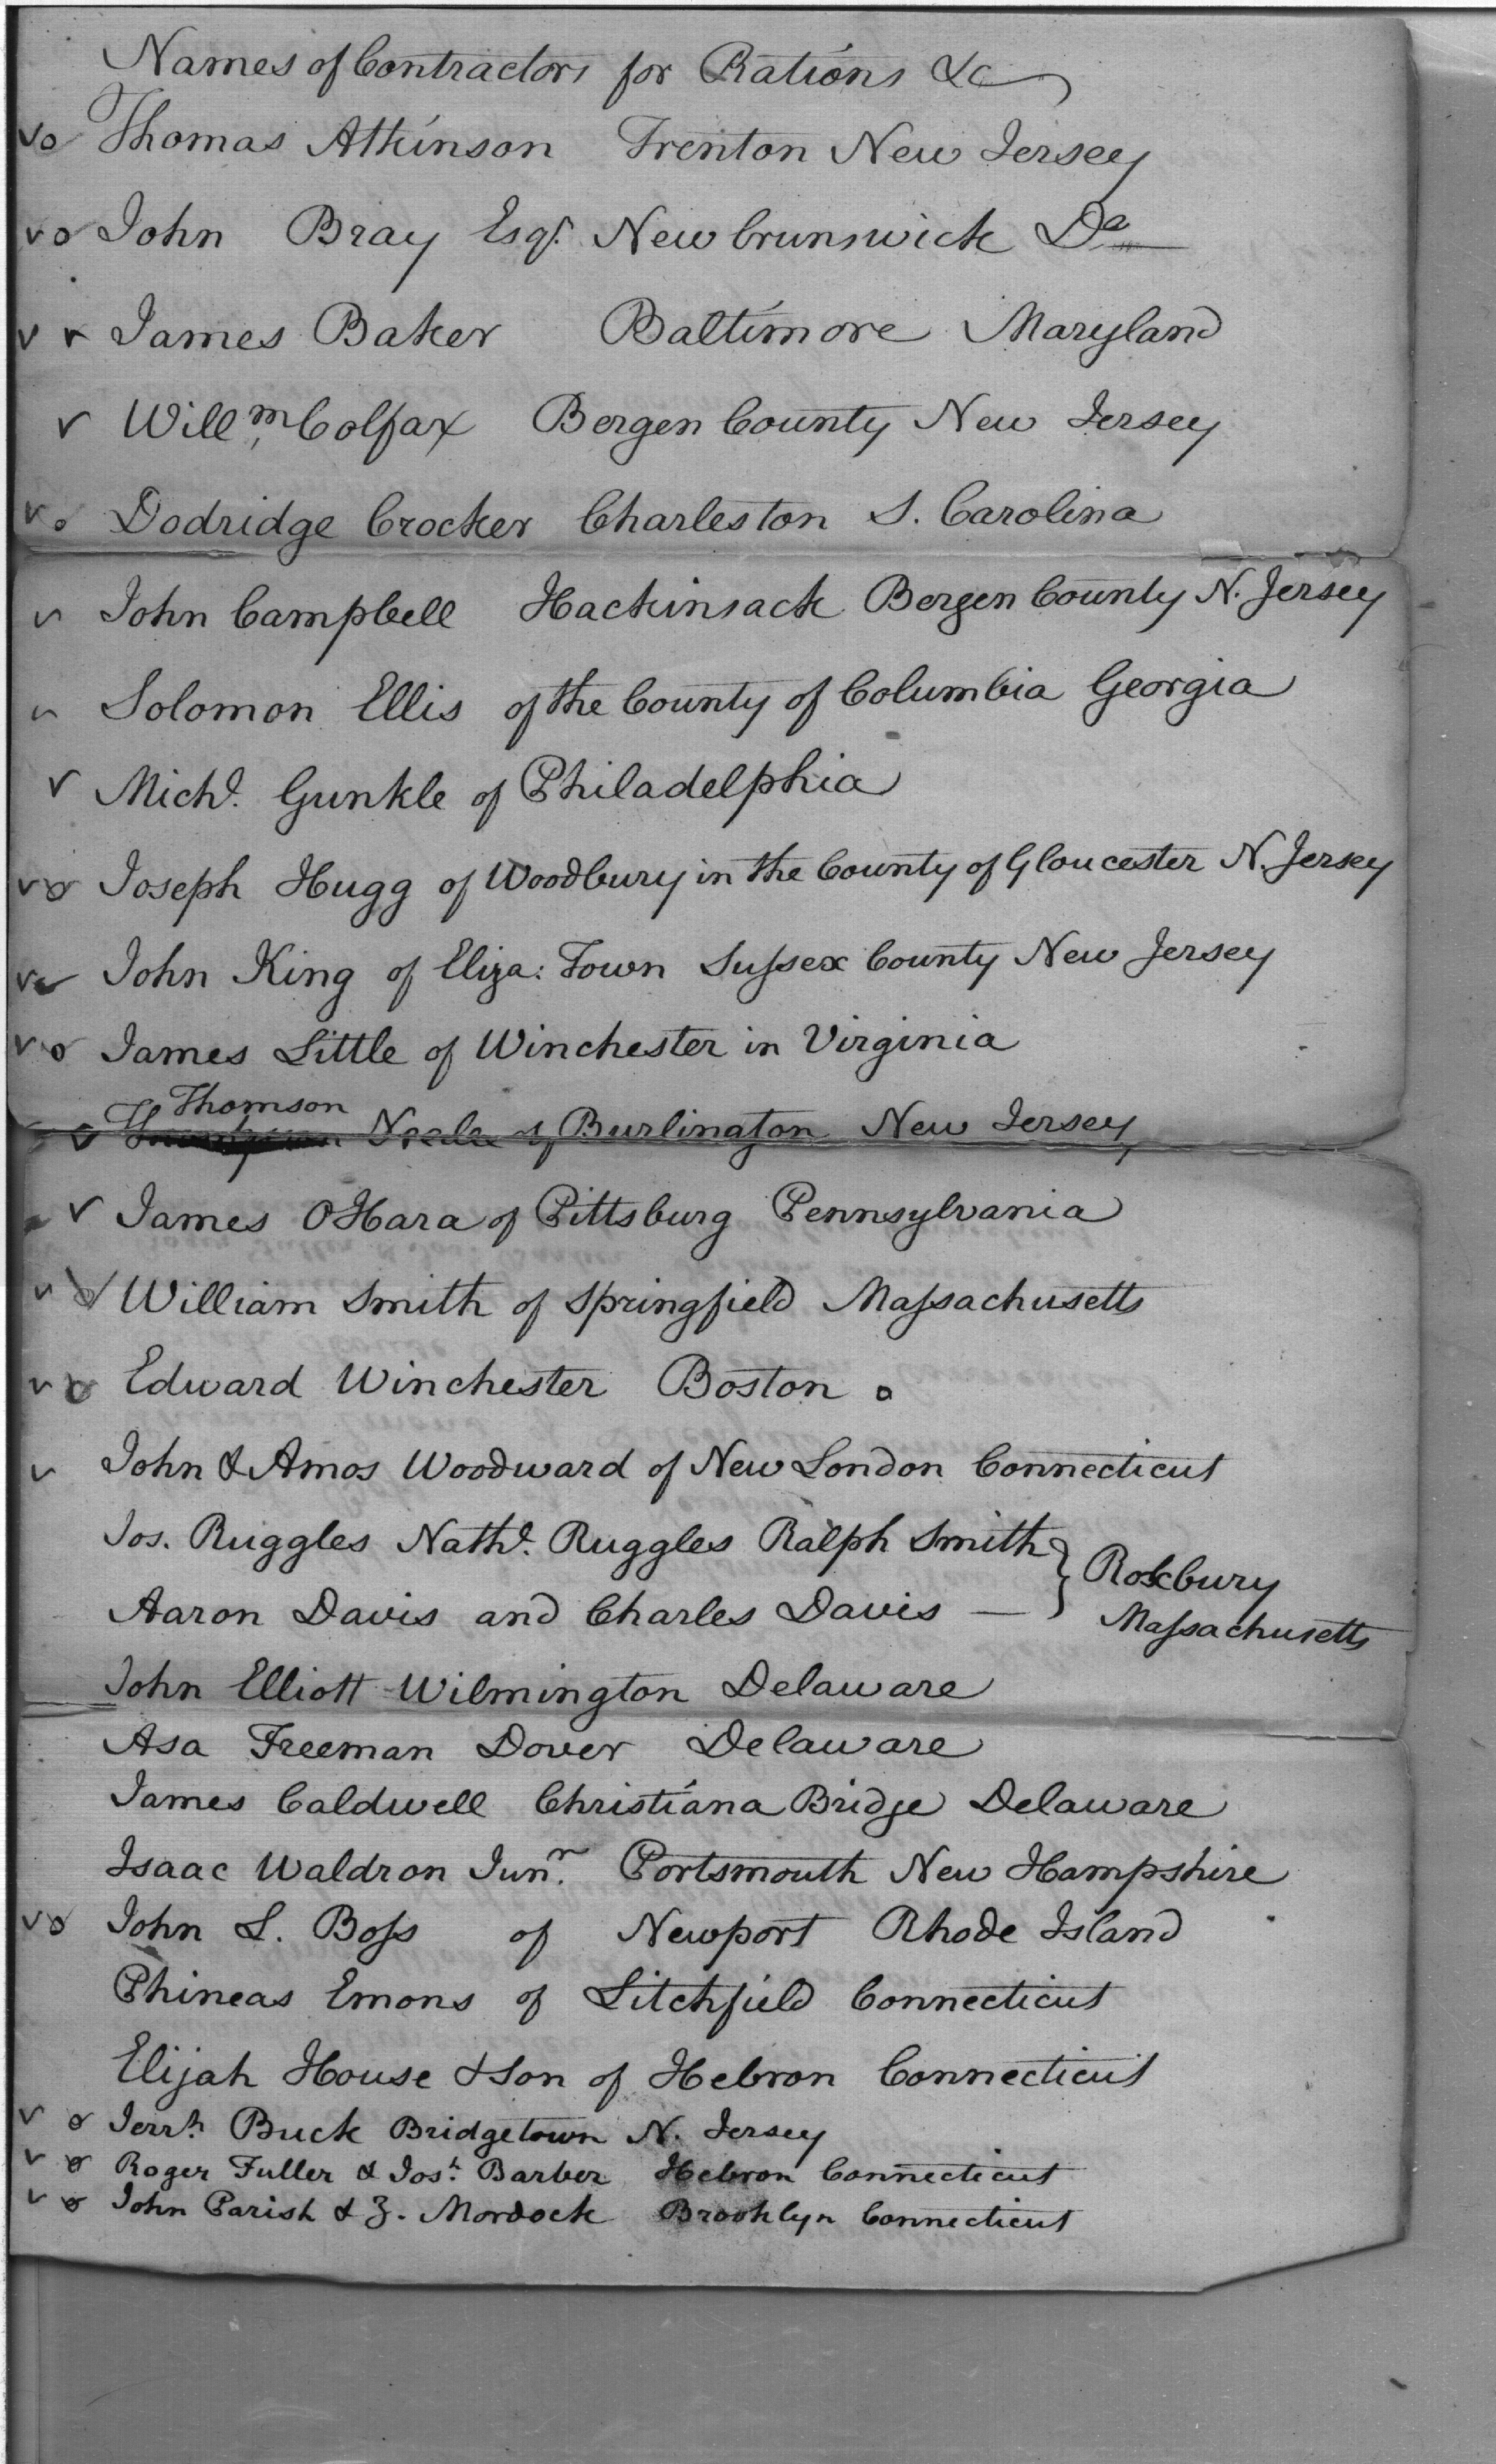 Names of Contractors for Rations &c
Thomas Atkinson Trenton New Jersey
John Bray Esqr. New brunswick Do
James Baker Baltimore Maryland
Willm Colfax Bergen County New Jersey
Dodridge Crocker Charleston S. Carolina
John Campbell Hackinsack Bergen County N. Jersey
Solomon Ellis of the County of Columbia Georgia
Michl. Gunkle of Philadelphia
Joseph Hugg of Woodbury in the County of Gloucester N. Jersey
John King of Eliza: Town Sussex County New Jersey
James Little of Winchester in Virginia
Thomson
Neale of Burlington New Jersey
James OHara of Pittsburg Pennsylvania
William Smith of Springfield Massachusetts
Edward Winchester Boston
John & Amos Woodward of New London Connecticut
Jos. Ruggles Nathl. Ruggles Ralph Smith } Roxbury
Aaron Davis and Charles Davis — Massachusetts
John Elliott Wilmington Delaware
Asa Freeman Dover Delaware
James Caldwell Christiana Bridge Delaware
Isaac Waldron Junr. Portsmouth New Hampshire
John L. Boss of Newport Rhode Island
Phineas Emons of Litchfield Connecticut
Elijah House & Son of Hebron Connecticut
Jerrh. Buck Bridgetown N. Jersey
Roger Fuller & Josh. Barber Hebron Connecticut
John Parish & Z. Mordock Brooklyn Connecticut